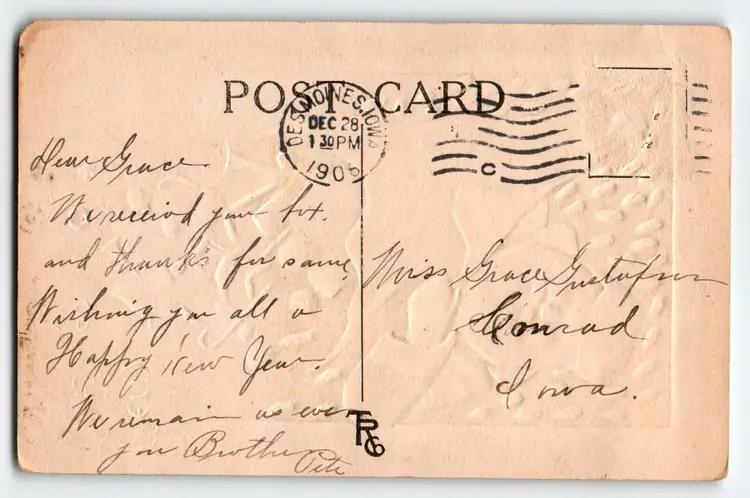 POST CARD
DES MOINES, IOWA
DEC 28
1 30 PM
1906
C
Dear Grace
We receivd your box.
and thanks for same,
Wishing you all a
Happy New Year.
We remain as ever
your Brother
Pete
Miss Grace Gustafson
Conrad
Iowa.